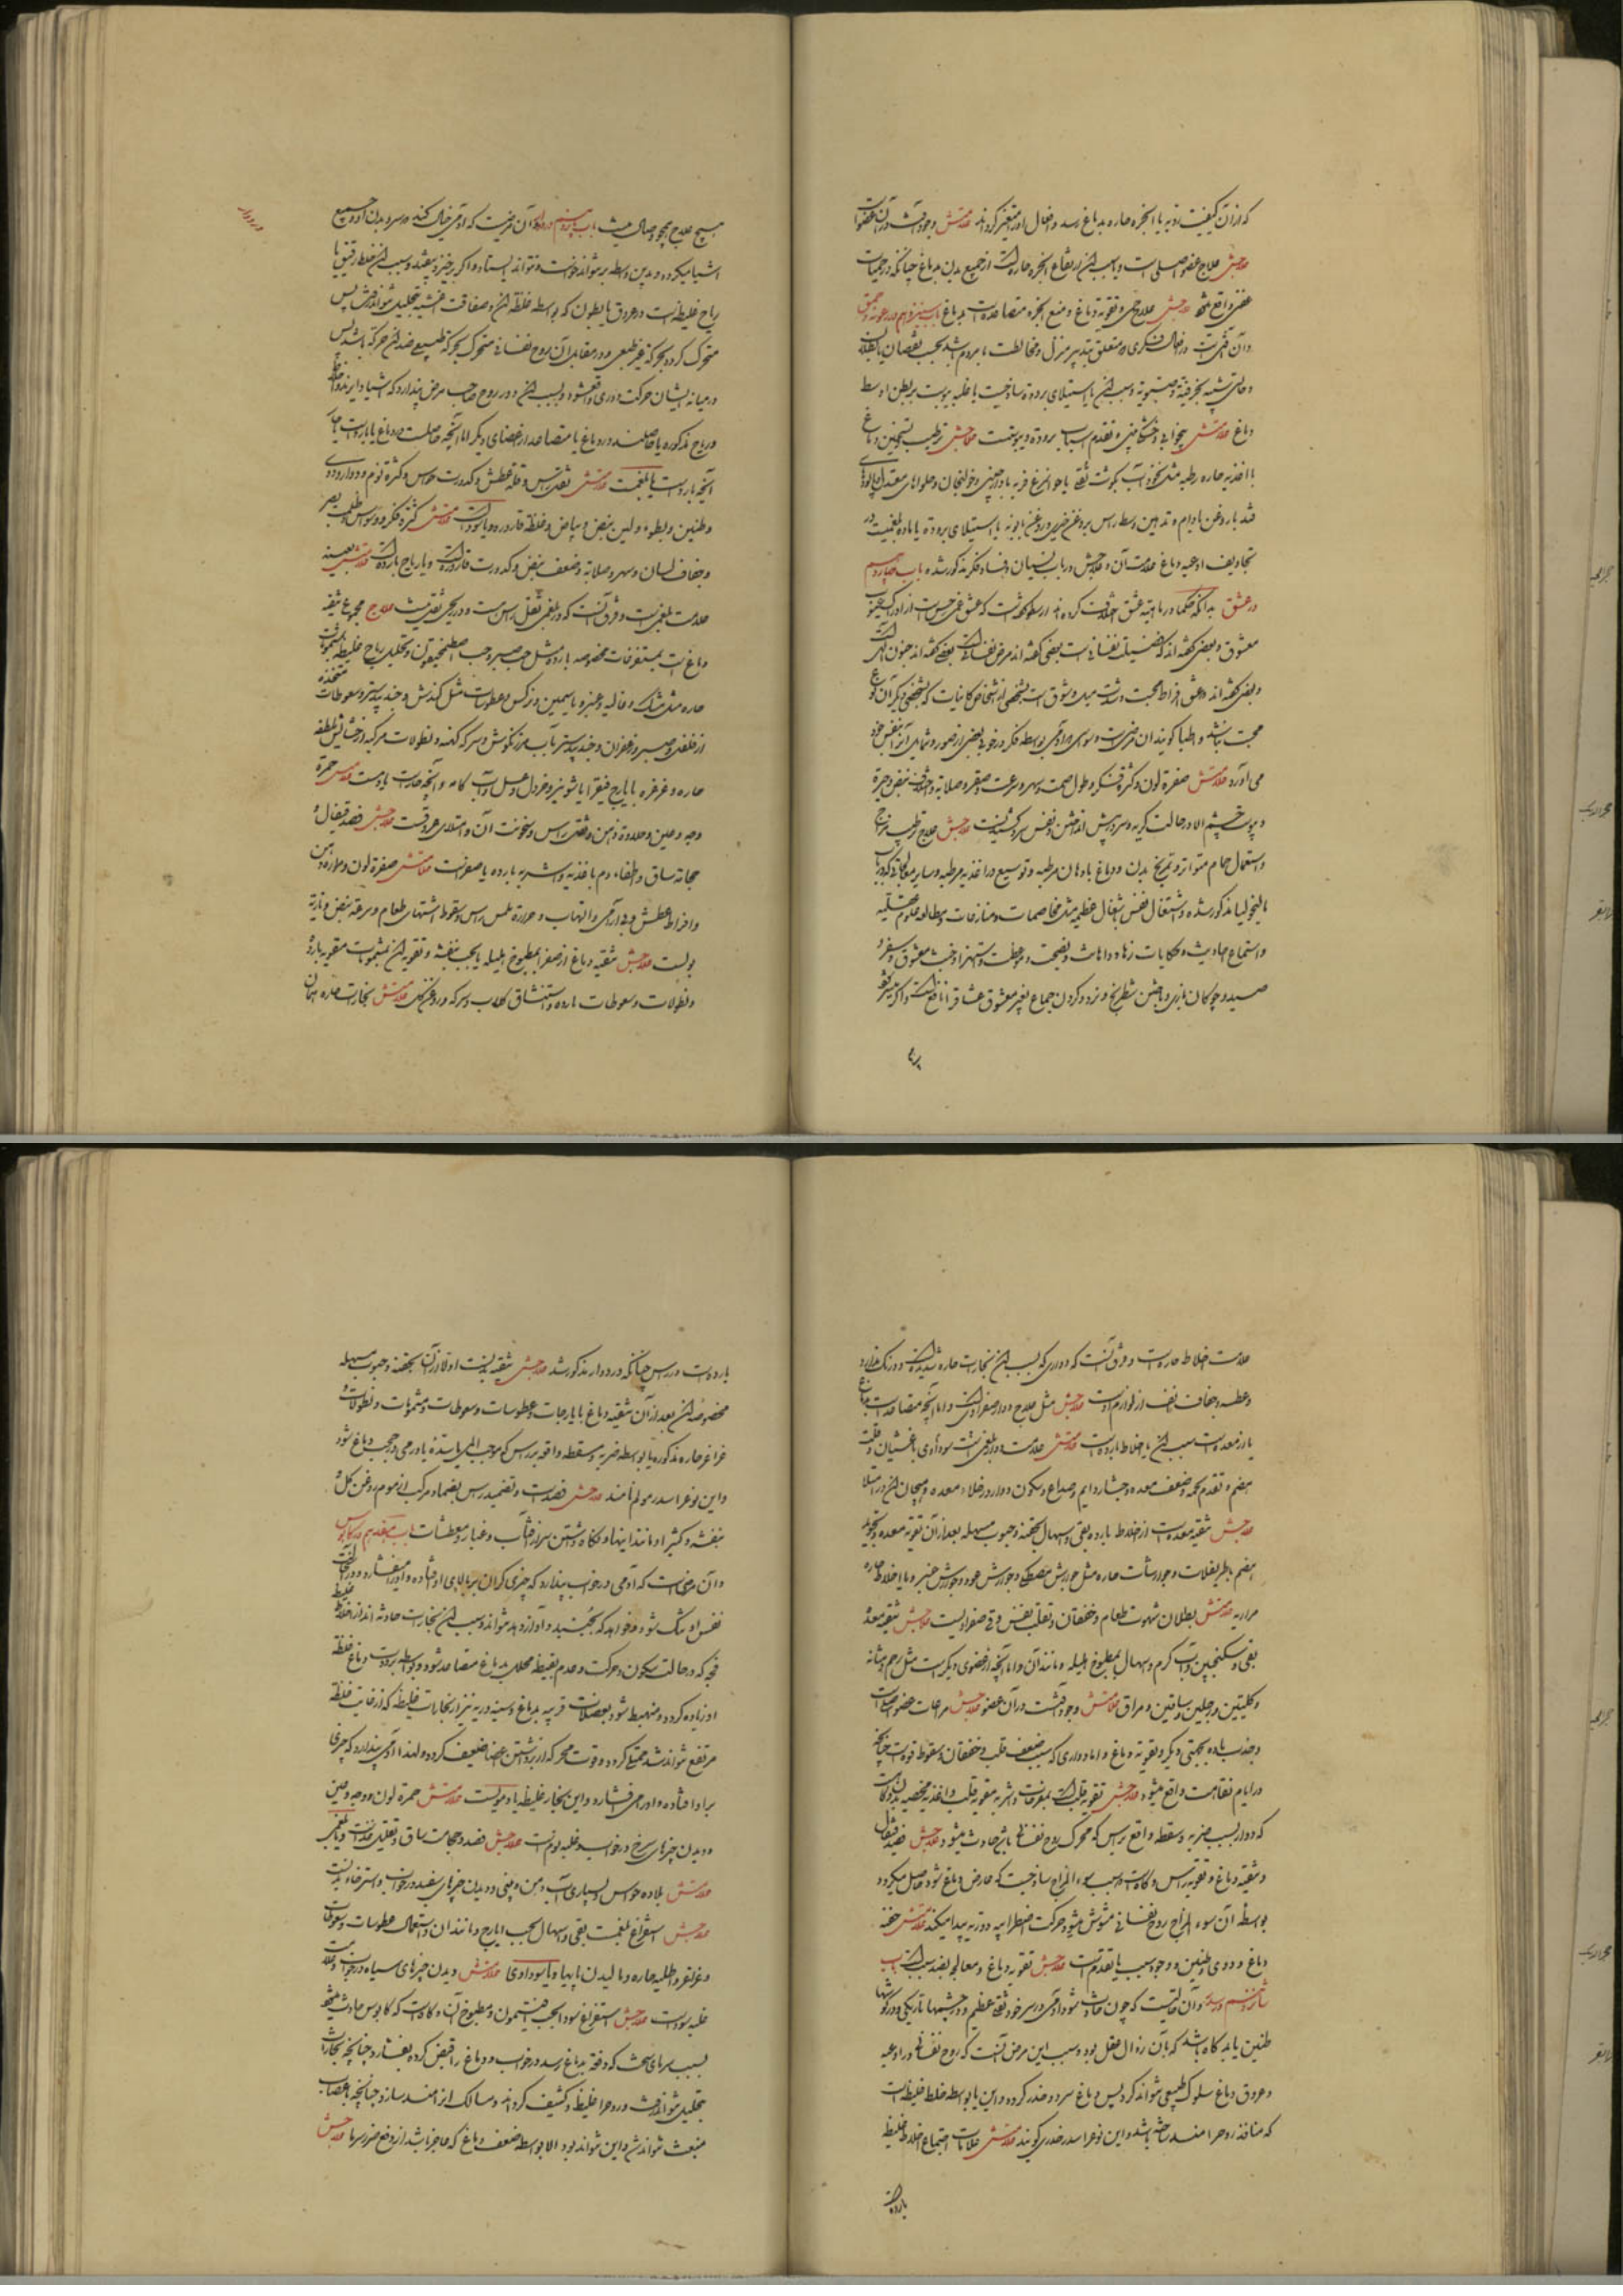 که از آن کیفیت ردیه یا ابخره حاره بدماغ رسد و افعال او متغیر گرداند علامتش وجود آفت در آن عضو است
علاجش علاج عضو اصلی است و یا سبب آن ارتفاع ابخره حاره است از جمیع بدن بدماغ چنانکه در حمیات
واقع شود علاجش علاج حمی و تقویة دماغ و منع ابخره متصاعده است بدماغ باب سیزدهم در رعونة و حمق
و آن آفتی است در افعال فکری که متعلق بتدبیر منزل و مخالطت با مردم باشد بحسب نقصان یا بطلان
و حالتی شبیه بخرفیة و صبوبة و سبب آن یا استیلای برودة ساذجست یا غلبه یبوست بر بطن اوسط
دماغ علامتش بیخوابی و خشکی بینی و تقدم اسباب برودة و یبوست علاجش ترطیب و تسخین دماغ
با اغذیه حاره رطبه مثل نخودآب بگوشت یا جوانمرغ فربه با دارچینی و خولنجان و حلواهای معتدل
قند با روغن بادام و تدهین وسط راس بروغن خیری و روغن بابونه یا استیلای برودة یا ماده بلغمیست در
تجاویف اوعیه دماغ علامت آن و علاجش در باب نسیان و فساد فکر مذکور شده باب چهاردهم
در عشق بدانکه حکما در ماهیة عشق اختلاف کرده اند ارسطو گفته است که عشق عمی حس است از ادراک عیوب
معشوق و بعضی گفته اند که فضیلت نفسانی است بعضی گفته اند مرض نفسانی است بعضی گفته اند جنون الهی است
و بعضی گفته اند عشق افراط محبت و شدت میل و شوق است بشخصی از اشخاص کاینات که بشخصی دیگر آن نوع
محبت نباشد و اطبا گویند آن مرضی است وسواسی که آدمی بواسطه فکر در خوبی بعضی از صور و شمایل آنرا بنفس خود
می آورد علامتش صفرة لون و کثرة فکر و طول صمت و سهر و سرعت و صغر و صلابة و اختلاف نبض و حمرة
و یبوست چشم الا در حالت گریه و سر در پیش انداختن و نفس سرد کشیدنست علاجش علاج ترطیب مزاج
و استعمال حمام متواتر و تمریخ بدن و دماغ بادهان مرطبه و توسیع در اغذیه مرطبه و سایر معالجاتی که در باب
مالیخولیا مذکور شده و اشتغال نفس باشغال عظیمه مثل مخاصمات و منازعات و مطالعه علوم عقلیه
و استماع احادیث و حکایات زهاد و اهانت و نصیحت و موعظت و استهزا و خبث معشوق و سفر و
صید و چوگان بازی و باختن شطرنج و نرد و کردن جماع بغیر معشوق عشاق را نافع است و اگر میسر نشود
هیچ علاج همچو وصال نیست باب پانزدهم در دوار و آن مرضیست که آدمی خیال کند که سر و بدن او و جمیع
اشیا میگردد و بدین واسطه بر نتواند خاست و نتواند ایستاد و اگر برخیزد بیفتد و سبب آن خلط رقیق یا
ریاح غلیظ است در عروق یا بطون که بواسطه غلظة آن و صفاقت اغشیه تحلیل نتواند رفت پس
متحرک گردد بحرکة غیر طبیعی و در مقابل آن روح نفسانی متحرک بحرکة طبیعی ضد آن حرکة باشد پس
در میانه ایشان حرکت دوری واقع شود و بسبب آن دور روح صاحب مرض پندارد که اشیا دایرند و اخلاط
و ریاح مذکوره یا حاصلند در دماغ یا متصاعد از اعضای دیگر اما آنچه حاصلست در دماغ یا بارد است یا حار
آنچه بارد است یا بلغمیست علامتش ثقل راس و قلة عطش و کدورت حواس و کثرة نوم و دوار و دوی
و طنین و بطوء و لین نبض و بیاض و غلظة قاروره و یا سوداوی است علامتش کثرة فکر و وسواس و ظلمت بصر
و جفاف لسان و سهر و صلابة و ضعف نبض و کدورت قاروره است و یا ریاح بارده است علامتش بعینه
علامت بلغمی است و فرق آنست که در بلغمی ثقل راس است و در ریحی ثقل نیست علاج مجموع تنقیه
دماغ است بمستفرغات مخصوصه بارده مثل حب صبر و حب اصطمخیقون و تحلیل ریاح غلیظه بشمومات
حاره مثل مشک و غالیه و عنبر و یاسمین و نرگس و عطوسات مثل کندش و جندبیدستر و سعوطات متخذه
از فلفل و صبر و زعفران و جندبیدستر بآب مرزنگوش و سرکه کهنه و نطولات مرکبه از حشایش ملطفه
حاره و غرغره بایارج فیقرا یا شونیز و خردل و عسل و آب کامه و آنچه حار است یا دمویست علامتش حمرة
وجه و عین و حلاوة دهن و ثقل راس و سخونت آن و امتلای عروقست علاجش فصد قیفال و
حجامة ساق و اطفاء دم باغذیه و اشربه بارده یا صفراست علامتش صفرة لون و مرارة دهن
و افراط عطش و بی آرامی و التهاب و حرارة ملمس راس و سقوط اشتهای طعام و سرعة نبض و ناریة
بولست علاجش تنقیه دماغ از صفرا بمطبوخ هلیله یا بحب بنفشه و تقویه آن بشمومات مقویه بارده
و نطولات و سعوطات بارده و استنشاق گلاب و سرکه و روغن گل علامتش بخارات حاره همان
علامت اخلاط حاره است و فرق آنست که دواری که بسبب آن بخارات حاره شدید است و درنگ ندارد
و عطسه و جفاف انف از لوازم اوست علاجش مثل علاج دوار صفراوی است و اما آنچه متصاعد است بدماغ
یا از معده است سبب آن یا اخلاط بارده است علامتش علامت دوار بلغمی است و سوداوی با غثیان و قلت
هضم و تقدم تخمه و ضعف معده و جشاء دایم و صداع و سکون دوار در خلاء معده و هیجان آن در امتلا
علاجش تنقیه معده است از اخلاط بارده بقی و اسهال بحقنه و حبوب مسهله بعد از آن تقویة معده و تجوید
هضم باطریفلات و جوارشات حاره مثل جوارش مصطکی و جوارش عود و جوارش خبز و یا اخلاط حاره
مراریه علامتش بطلان شهوت طعام و خفقان و تقلب نفس و قی صفراویست علاجش تنقیه معده
بقی و سکنجبین و آب گرم و اسهال بمطبوخ هلیله و مانند آن و اما آنچه از عضوی دیگر است مثل رحم و مثانه
و کلیتین و رجلین و ساقین و مراق علامتش وجود آفتست در آن عضو علاجش مراعات عضو اصلی است
و جذب ماده بجهتی دیگر و تقویه دماغ و اما دواری که بسبب ضعف قلب و خفقان و سقوط قوت چنانچه
در ایام نقاهت واقع میشود علاجش تقویه قلب است بمفرحات و اشربه مقویه قلب و اغذیه مخصبه بدن و گاه است
که دوار بسبب ضربه و سقطه واقع بر سر که محرک روح نفسانی باشد حادث میشود علاجش فصد قیفال
و تنقیه دماغ و تقویه راس و گاه است بسبب سوء المزاج ساذجست که عارض دماغ شود حاصل میگردد
بواسطه آن سوء المزاج روح نفسانی مشوش میشود و حرکت اضطرابیه دوریه پیدا میکند علامتش خفة
دماغ و دوی و طنین و وجود سبب یا تقدم است علاجش تقویه دماغ و معالجه بضد سبب است باب
شانزدهم در سدر و آن حالتیست که چون حادث شود آدمی در سر خود ثقلی عظیم و در چشمها تاریکی و در گوشها
طنین یابد گاه باشد که با آن زوال عقل بود و سبب این مرض آنست که روح نفسانی در اوعیه
و عروق دماغ سلوک طبیعی نتواند کرد پس دماغ سرد و خدر گردد و این یا بواسطه خلط غلیظ است
که منافذ روح را منسد ساخته باشد و این نوع را سدر خدری گویند علامتش علامات اجتماع اخلاط غلیظ
بارده
بارده است در راس چنانکه در دوار مذکور شد علاجش تنقیه بدنست اولا از آن بحقنه و حبوب مسهله
مخصوصه آن بعد از آن تنقیه دماغ بایارجات و عطوسات و سعوطات و مشمومات و نطولات و
غراغر حاره مذکوره یا بواسطه ضربه و سقطه واقعه بر راس که موجب المی یا سده یا ورمی در حجب دماغ شود
و این نوع را سدر مولم نامند علاجش فصد است و تضمید راس بضماد مرکب از موم روغن گل و
بنفشه و کثیرا و مانند اینها و نگاه داشتن سر از آفتاب و غبار و معطشات باب هفدهم در کابوس
و آن مرضی است که آدمی در خواب پندارد که چیزی گران بر بالای او افتاده و او را میفشارد و در آن حالت
نفس او تنگ شود و خواهد که بجنبد و آواز دهد نتواند و سبب آن بخارات حادثه اند از اخلاط غلیظ
فجه که در حالت سکون و حرکت و عدم یقظه محلله بدماغ متصاعد شود و بواسطه برودت دماغ غلظة
او زیاده گردد و منهبط شود بعضلات قریبه بدماغ و سینه و ریه نیز از بخارات غلیظه که از غایت غلظة
مرتفع نتواند شد ممتلی گردد و قوت محرکه از برداشتن اعضا ضعیف گردد و لهذا آدمی پندارد که چیزی
بر او افتاده و او را می فشارد و این بخار غلیظ یا دمویست علامتش حمرة لون و وجه و عین
و دیدن چیزهای سرخ در خواب و غلبه نومست علاجش فصد و حجامت ساق و تقلیل غذاست و یا بلغمی
علامتش بلاده حواس و بسیاری آب دهن و بینی و دیدن چیزهای سفید در خواب و استرخاء بدنست
علاجش استفراغ بلغمست بقی و اسهال بحب ایارج و مانند آن و استعمال عطوسات و سعوطات
و غراغر و اطلیه حاره و مالیدن پایها و یا سوداوی علامتش دیدن چیزهای سیاه در خواب و علامات
غلبه سودا است علاجش استفراغ سودا بحب افتیمون و مطبوخ آن و گاه است که کابوس حادث میشود
بسبب سرمای سخت که دفعة بدماغ رسد در خواب و دماغ را قبض کرده بفشارد چنانچه بخارات
بتحلیل نتواند رفت و روح را غلیظ و کثیف گرداند و مسالک او را منسد سازد چنانچه باعصاب
منبعث نتواند شد و این نتواند بود الا بواسطه ضعف دماغ که عاجز باشد از دفع ضرر سرما علاجش